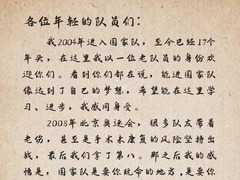 各位年轻的队员们:
我2004年进入国家队,至今已经17个
年头,在这里我以一位老队员的身份欢
迎你们。看到你们都在说,能进国家队
像达到了自己的梦想,希望能在这里学
习、进步,我感同身受。
2008年北京奥运会,很多队友带着
老伤,甚至是手术未康复的风险坚持出
战,最后我们拿了第八。那之后我的感
悟是,国家队是要你玩命的地方,是要你